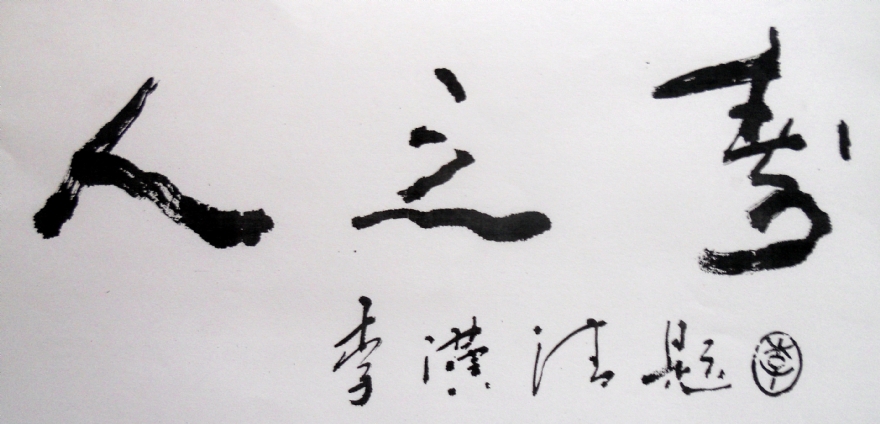 人之寿
李漢清题
李